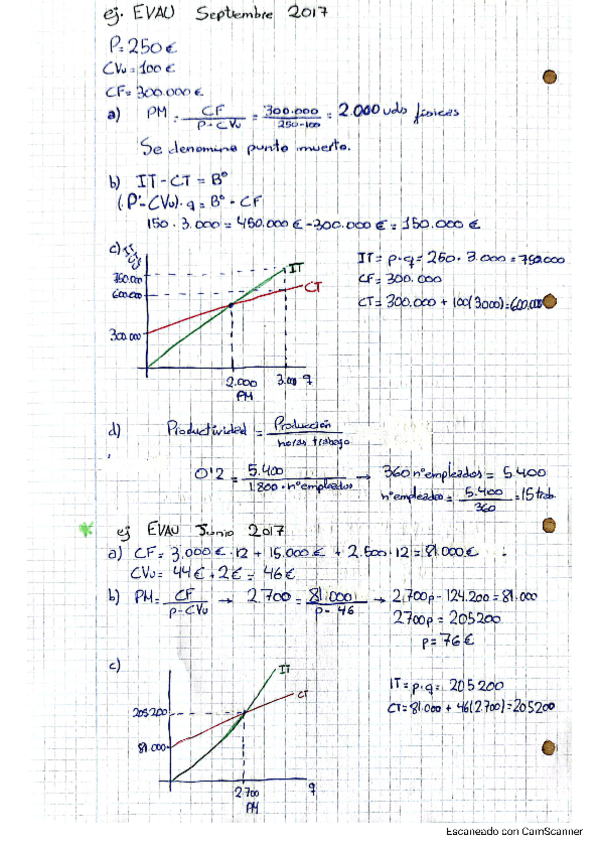 ej. EVAU Septembre 2017
P = 250 €
CVu = 100 €
CF = 300.000 €
a) PM = CF / P - CVu = 300.000 / 250-100 = 2.000 uds físicas
Se denomina punto muerto.
b) IT - CT = Bº
(P - CVu) · q = Bº - CF
150 · 3.000 = 450.000 € - 300.000 € = 150.000 €
c)
IT
CT
750.000
600.000
300.000
2.000
PM
3.000 q
IT = p · q = 250 · 3.000 = 750.000
CF = 300.000
CT = 300.000 + 100(3000) = 600.000
d) Productividad = Producción / horas trabajo
0'2 = 5.400 / 1.800 · nºempleados → 360 nºempleados = 5.400
nºempleados = 5.400 / 360 = 15 trab.
ej EVAU Junio 2017
a) CF = 3.000 € · 12 + 15.000 € + 2.500 · 12 = 81.000 €
CVu = 44 € + 2 € = 46 €
b) PM = CF / p - CVu → 2.700 = 81.000 / p - 46 → 2.700p - 124.200 = 81.000
2700p = 205200
p = 76 €
c)
IT
CT
205200
81.000
2.700
PM
q
IT = p · q = 205200
CT = 81.000 + 46(2.700) = 205200
Escaneado con CamScanner